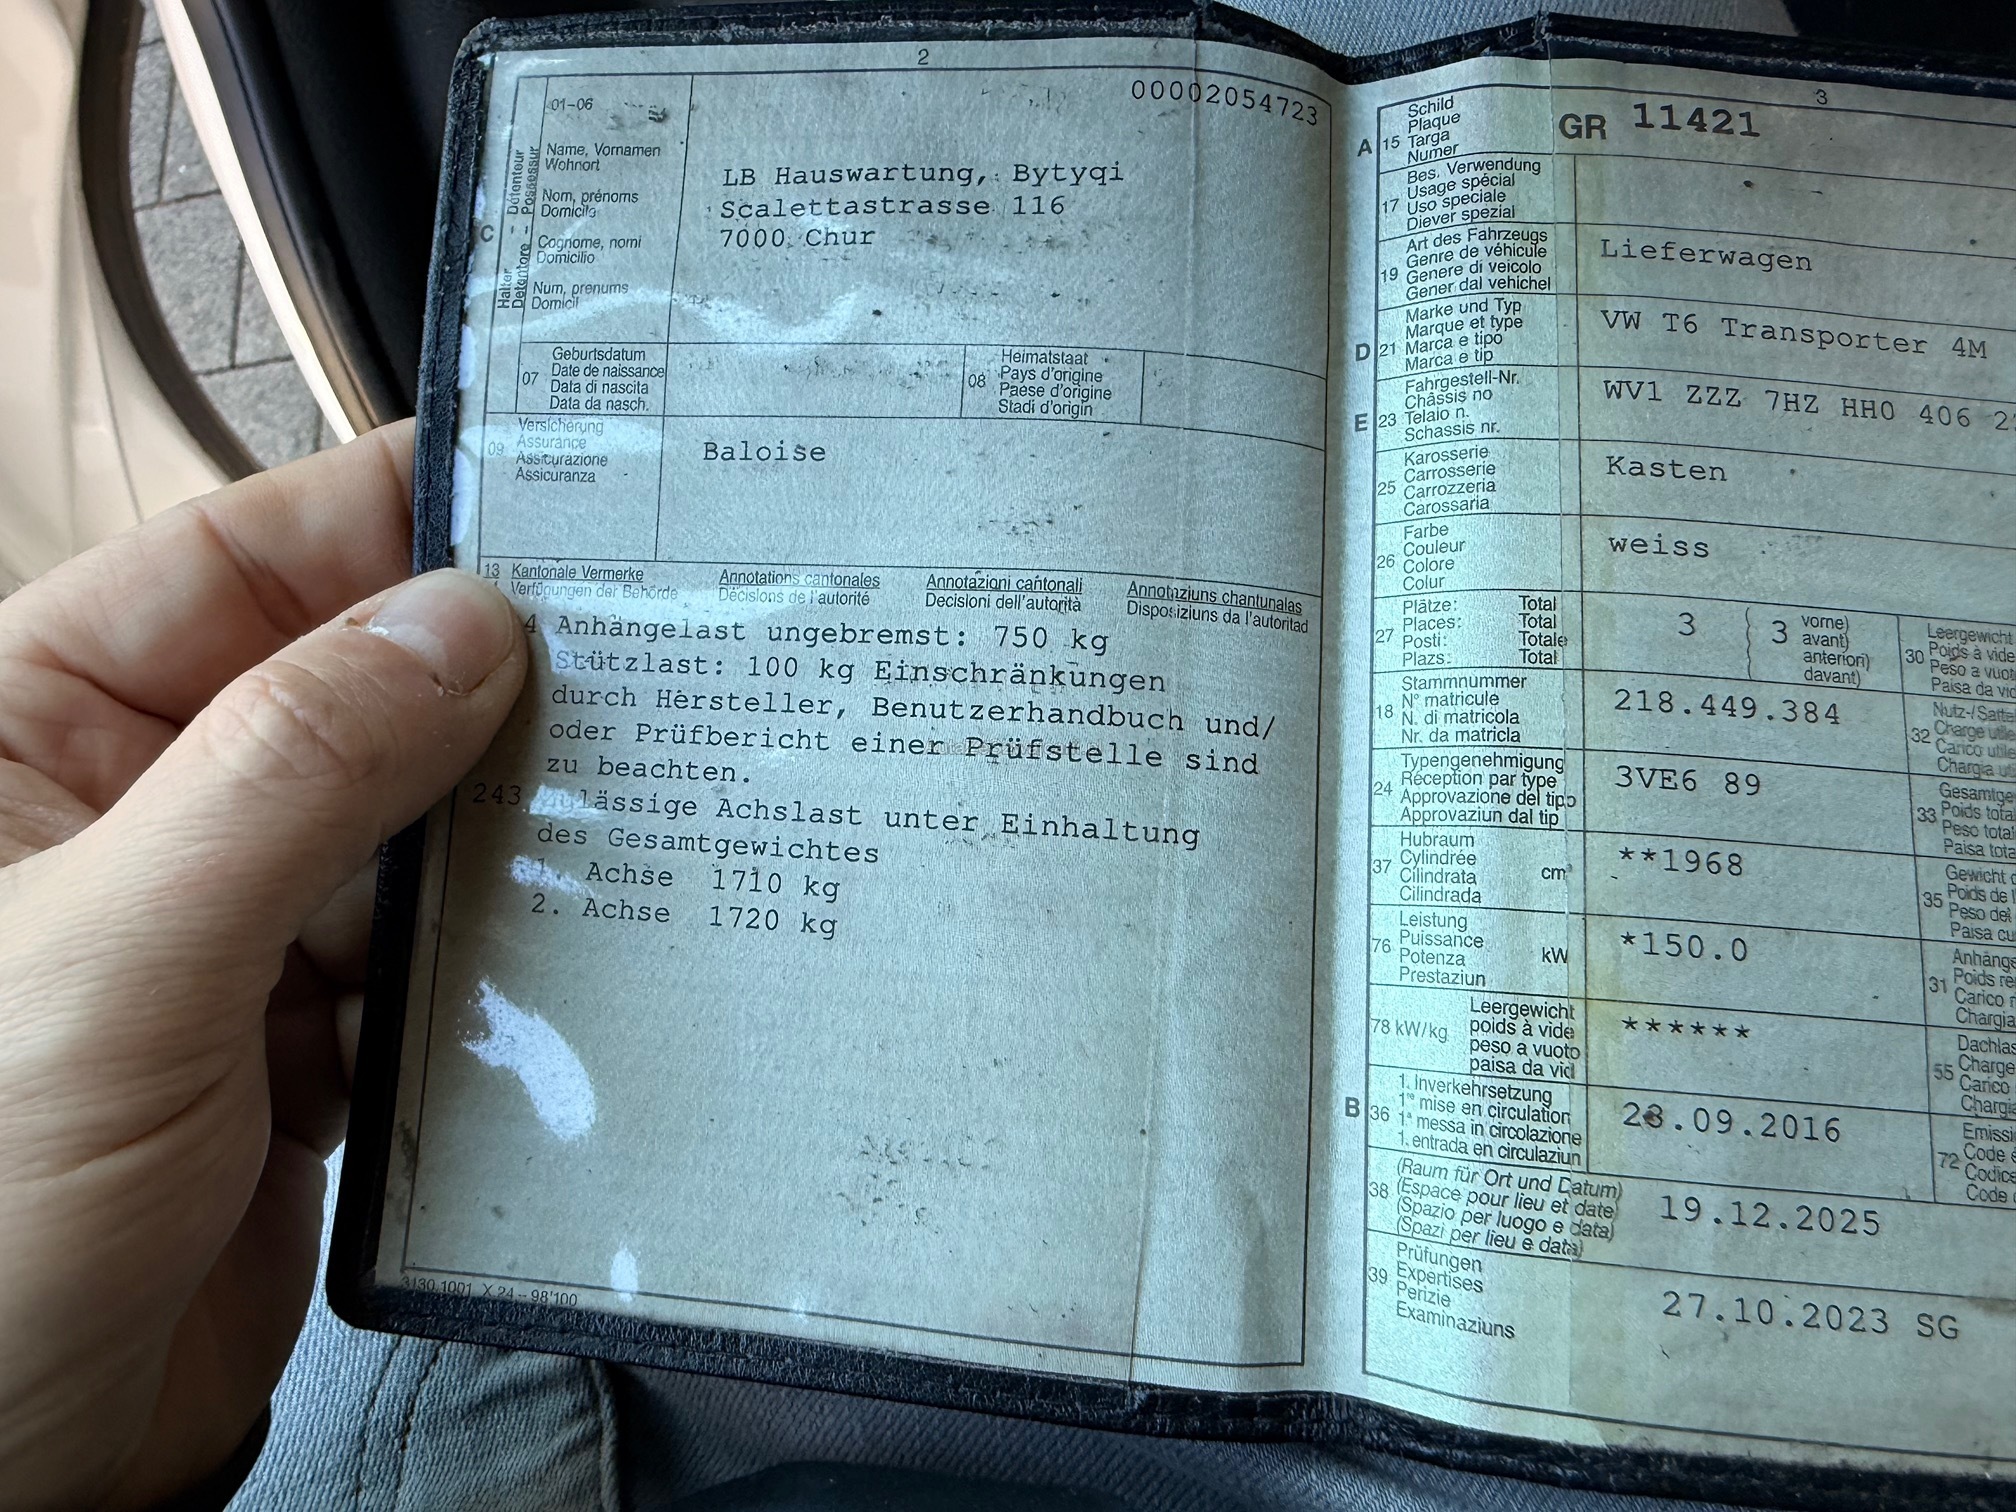 2
00002054723
01-06
Halter - Détenteur
Detentore - Possessur
C
Name, Vornamen
Wohnort
Nom, prénoms
Domicile
Cognome, nomi
Domicilio
Num, prenums
Domicil
LB Hauswartung, Bytyqi
Scalettastrasse 116
7000 Chur
07
Geburtsdatum
Date de naissance
Data di nascita
Data da nasch.
08
Heimatstaat
Pays d'origine
Paese d'origine
Stadi d'origin
09
Versicherung
Assurance
Assicurazione
Assicuranza
Baloise
13 Kantonale Vermerke Annotations cantonales Annotazioni cantonali Annotaziuns chantunalas
Verfügungen der Behörde Décisions de l'autorité Decisioni dell'autorità Disposiziuns da l'autoritad
4 Anhängelast ungebremst: 750 kg
Stützlast: 100 kg Einschränkungen
durch Hersteller, Benutzerhandbuch und/
oder Prüfbericht einer Prüfstelle sind
zu beachten.
243 Zulässige Achslast unter Einhaltung
des Gesamtgewichtes
1. Achse 1710 kg
2. Achse 1720 kg
3130.1001 X 24 - 98'100
3
A 15
Schild
Plaque
Targa
Numer
GR 11421
17
Bes. Verwendung
Usage spécial
Uso speciale
Diever spezial
19
Art des Fahrzeugs
Genre de véhicule
Genere di veicolo
Gener dal vehichel
Lieferwagen
D 21
Marke und Typ
Marque et type
Marca e tipo
Marca e tip
VW T6 Transporter 4M
E 23
Fahrgestell-Nr.
Châssis no
Telaio n.
Schassis nr.
WV1 ZZZ 7HZ HH0 406 2
25
Karosserie
Carrosserie
Carrozzeria
Carossaria
Kasten
26
Farbe
Couleur
Colore
Colur
weiss
27
Plätze: Total
Places: Total
Posti: Totale
Plazs: Total
3
3
vorne)
avant)
anteriori)
davant)
30
Leergewicht
Poids à vide
Peso a vuot
Paisa da vi
18
Stammnummer
N° matricule
N. di matricola
Nr. da matricla
218.449.384
32
Nutz-/Satte
Charge utile
Carico utile
Chargia ut
24
Typengenehmigung
Réception par type
Approvazione del tipo
Approvaziun dal tip
3VE6 89
33
Gesamtge
Poids total
Peso tota
Paisa tota
37
Hubraum
Cylindrée
Cilindrata
Cilindrada
cm³
**1968
35
Gewicht d
Poids de l
Peso del
Paisa cu
76
Leistung
Puissance
Potenza
Prestaziun
kW
*150.0
31
Anhänge
Poids re
Carico r
Chargia
78 kW/kg
Leergewicht
poids à vide
peso a vuoto
paisa da vid
******
55
Dachlas
Charge
Carico
Chargi
B 36
1. Inverkehrsetzung
1re mise en circulation
1a messa in circolazione
1. entrada en circulaziun
23.09.2016
72
Emissi
Code é
Codice
Code
38
(Raum für Ort und Datum)
(Espace pour lieu et date)
(Spazio per luogo e data)
(Spazi per lieu e data)
19.12.2025
39
Prüfungen
Expertises
Perizie
Examinaziuns
27.10.2023 SG